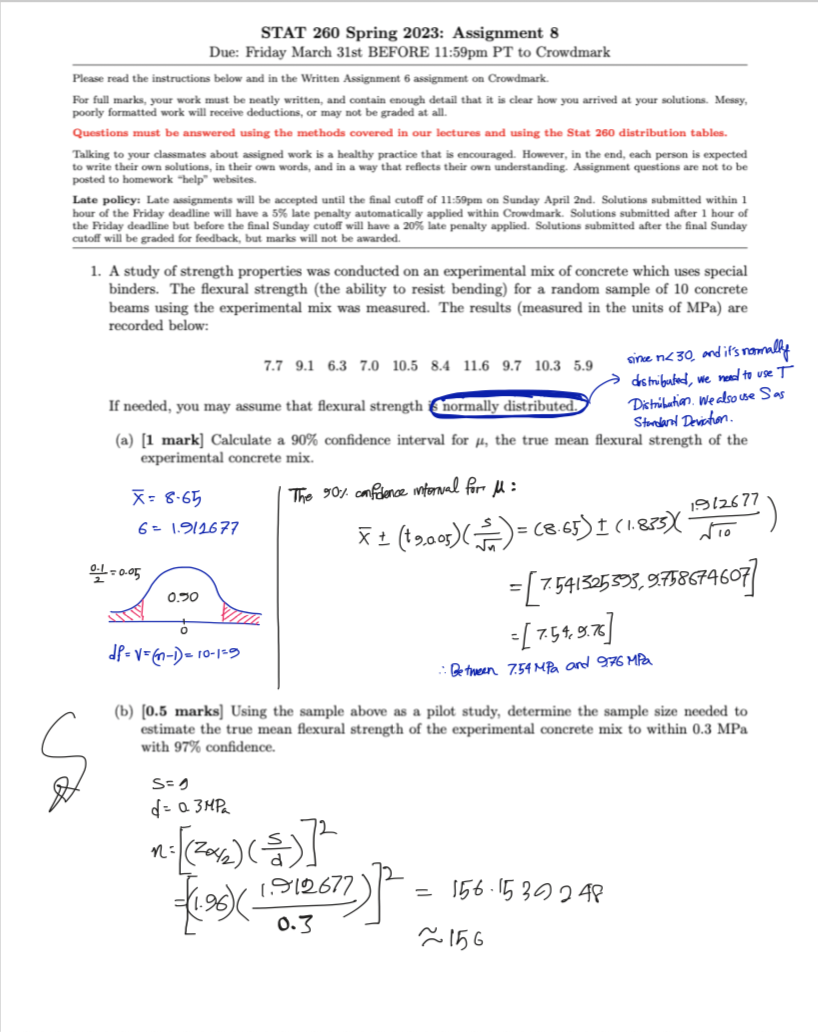 STAT 260 Spring 2023: Assignment 8
Due: Friday March 31st BEFORE 11:59pm PT to Crowdmark
Please read the instructions below and in the Written Assignment 6 assignment on Crowdmark.
For full marks, your work must be neatly written, and contain enough detail that it is clear how you arrived at your solutions. Messy,
poorly formatted work will receive deductions, or may not be graded at all.
Questions must be answered using the methods covered in our lectures and using the Stat 260 distribution tables.
Talking to your classmates about assigned work is a healthy practice that is encouraged. However, in the end, each person is expected
to write their own solutions, in their own words, and in a way that reflects their own understanding. Assignment questions are not to be
posted to homework "help" websites.
Late policy: Late assignments will be accepted until the final cutoff of 11:59pm on Sunday April 2nd. Solutions submitted within 1
hour of the Friday deadline will have a 5% late penalty automatically applied within Crowdmark. Solutions submitted after 1 hour of
the Friday deadline but before the final Sunday cutoff will have a 20% late penalty applied. Solutions submitted after the final Sunday
cutoff will be graded for feedback, but marks will not be awarded.
1. A study of strength properties was conducted on an experimental mix of concrete which uses special
binders. The flexural strength (the ability to resist bending) for a random sample of 10 concrete
beams using the experimental mix was measured. The results (measured in the units of MPa) are
recorded below:
7.7 9.1 6.3 7.0 10.5 8.4 11.6 9.7 10.3 5.9
since n<30, and it's normally
distributed, we need to use T
Distribution. We also use S as
Standard Deviation.
If needed, you may assume that flexural strength is normally distributed.
(a) [1 mark] Calculate a 90% confidence interval for μ, the true mean flexural strength of the
experimental concrete mix.
x̄ = 8.65
6 = 1.912677
0.1/2 = 0.05
0.90
0
df = V = (n-1) = 10-1=9
The 90% confidence interval for μ:
x̄ ± (t9,0.05)(s/√n) = (8.65) ± (1.833)(1.912677/√10)
= [7.541325393, 9.758674607]
= [7.54, 9.76]
∴ Between 7.54 MPa and 9.76 MPa
(b) [0.5 marks] Using the sample above as a pilot study, determine the sample size needed to
estimate the true mean flexural strength of the experimental concrete mix to within 0.3 MPa
with 97% confidence.
S = 9
d = 0.3 MPa
n = [(Zα/2)(S/d)]²
= [(1.96)(1.912677/0.3)]² = 156.1539248
≈ 156